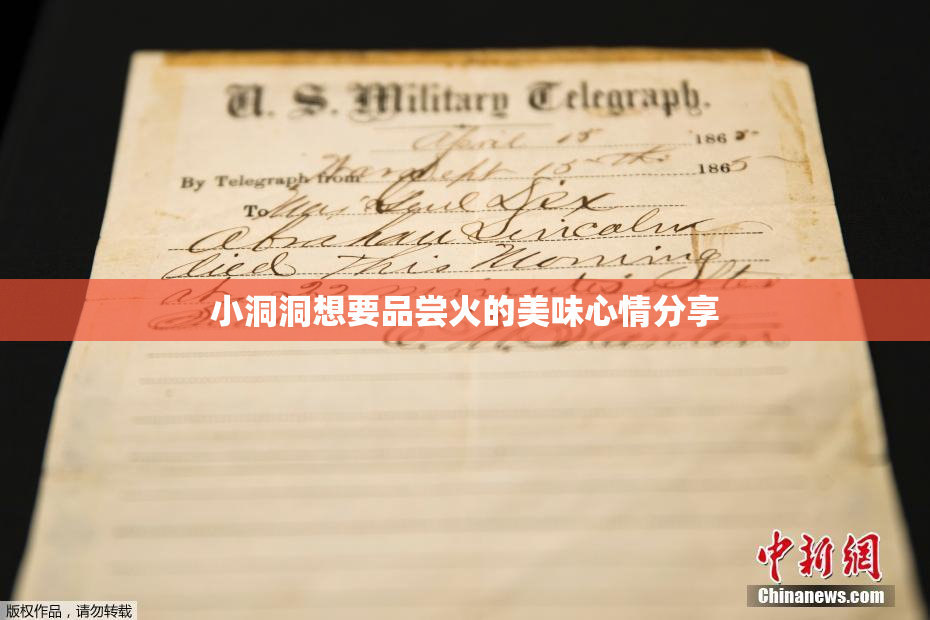 U. S. Military Telegraph.
April 15 1865
By Telegraph from War Dept 15th 1865
To Maj Genl Dix
Abraham Lincoln
died This Morning
at 22 minutes after
小洞洞想要品尝火的美味心情分享
E. M. Stanton
中新網
Chinanews.com
版权作品,请勿转载